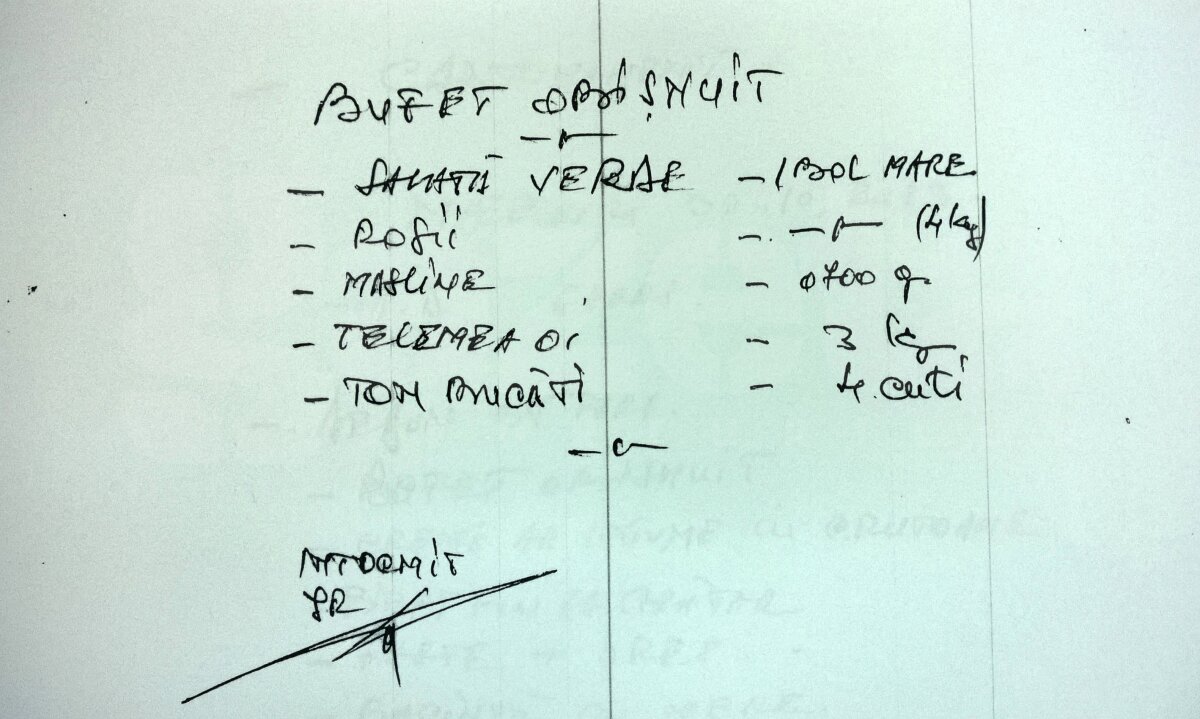 BUFET OBIȘNUIT
- SALATĂ VERDE - 1 BOL MARE
- ROȘII - -"- (4 kg)
- MASLINE - 0700 g.
- TELEMEA OI - 3 kg
- TON BUCĂȚI - 4 cutii
ÎNTOCMIT